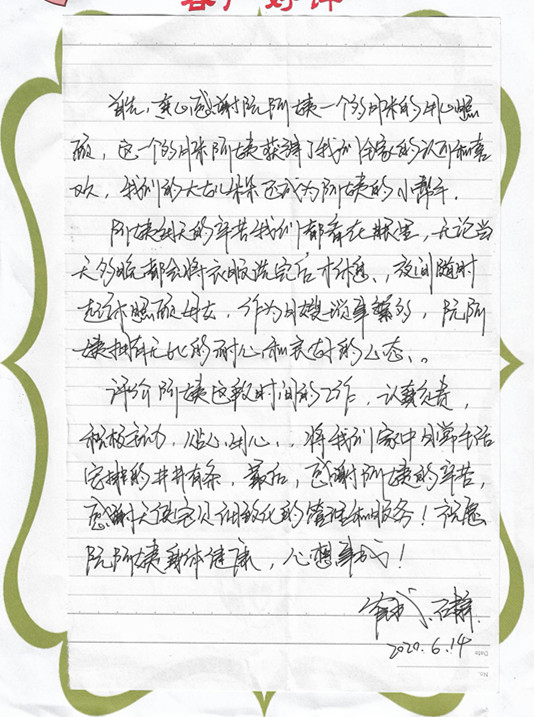 客户好评
首先，真心感谢阮阿姨一个多月来的用心照
顾，这一个多月来阿姨获得了我们全家的认可和喜
欢，我们的大女儿朵朵还成为阿姨的小帮手。
阿姨每天的辛苦我们都看在眼里，无论当
天多晚都会将衣服洗完后才休息、夜间随时
起床照顾母女，作为月嫂琐事繁多，阮阿
姨拥有无比的耐心和良好的心态、。
评价阿姨这段时间的工作，认真负责，
积极主动，贴心用心、，将我们家中日常生活
安排的井井有条，最后，感谢阿姨的辛苦，
感谢天使宝贝细致化的管理和服务！祝愿
阮阿姨身体健康，心想事成！
石静
2020.6.14
Date
No.